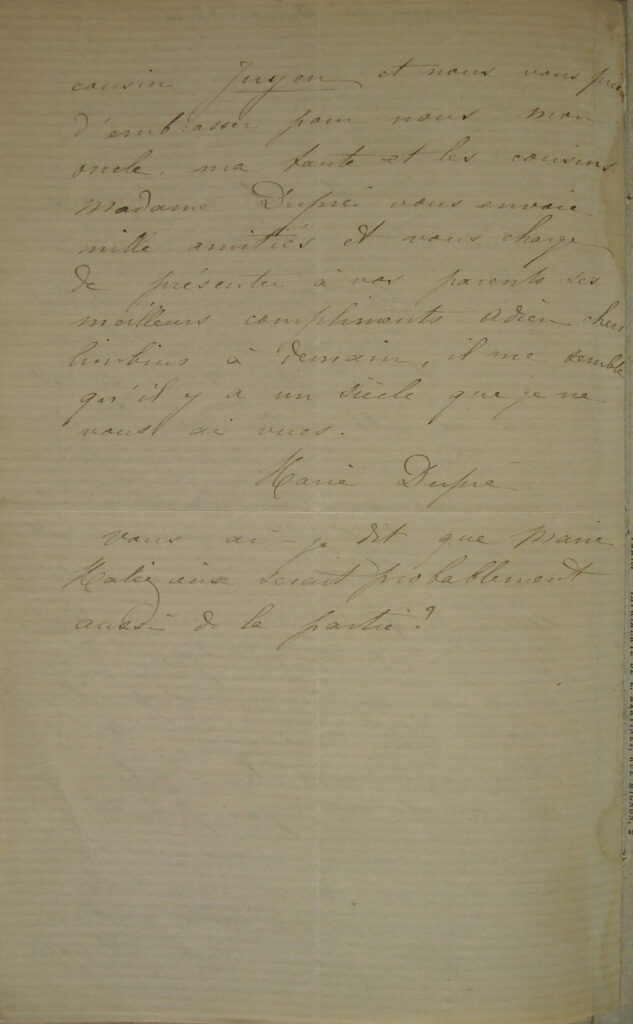 cousin Juyen et nous vous prions
d'embrasser pour nous mon
oncle, ma tante et les cousins
Madame Dupré vous envoie
mille amitiés et vous charge
de présenter à vos parents ses
meilleurs compliments adieu chers
à demain, il me semble
qu'il y a un siècle que je ne
vous ai vues.
Marie Dupré
Vous ai-je dit que Marie
serait probablement
aussi de la partie?